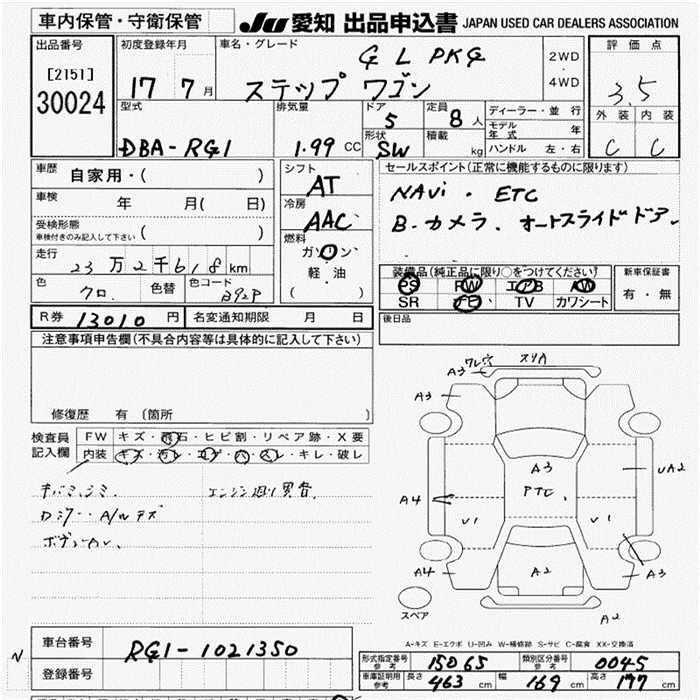 車内保管・守衛保管 JU 愛知 出品申込書 JAPAN USED CAR DEALERS ASSOCIATION
出品番号 初度登録年月 車名・グレード G L PKG 2WD・4WD 評価点
[2151]
30024 17 7月 ステップワゴン 3.5
型式 排気量 ドア 定員 ディーラー・並行 外装 内装
DBA-RG1 1.99 CC 5 8人 モデル年式 年
形状 SW 積載 kg ハンドル 左・右 C C
車歴 自家用・( ) シフト AT セールスポイント(正常に機能するものに限ります)
車検 年 月( 日) 冷房 AAC NAVi . ETC
受検形態 車検付きのみ記入して下さい ( ) B.カメラ. オートスライドドア
走行 23万2千618km 燃料 ガソリン 軽油 ( )
装備品(純正品に限り○をつけてください) 新車保証書
色 クロ. 色替 色コード B92P PS PW エアB AW 有・無
SR ナビ TV カワシート
R券 13010円 名変通知期限 月 日 後日品
注意事項申告欄(不具合内容等は具体的に記入して下さい)
修復歴 有 (箇所 )
検査員記入欄 FW キズ・飛石・ヒビ割・リペア跡・X要
内装 キズ・汚レ・コゲ・穴・スレ・キレ・破レ
ワレ穴 スリA
A3 A3
A3 UA2
A4 PTC.
V1 V1
A4 A2 A3
スペア A2
A-キズ E-エクボ U-凹み W-補修跡 S-サビ C-腐食 XX-交換済
N 車台番号 RG1-1021350
形式指定番号 参考 15065 類別区分番号 参考 0045
登録番号 車庫証明用 参考 長さ 463 cm 幅 169 cm 高さ 177 cm